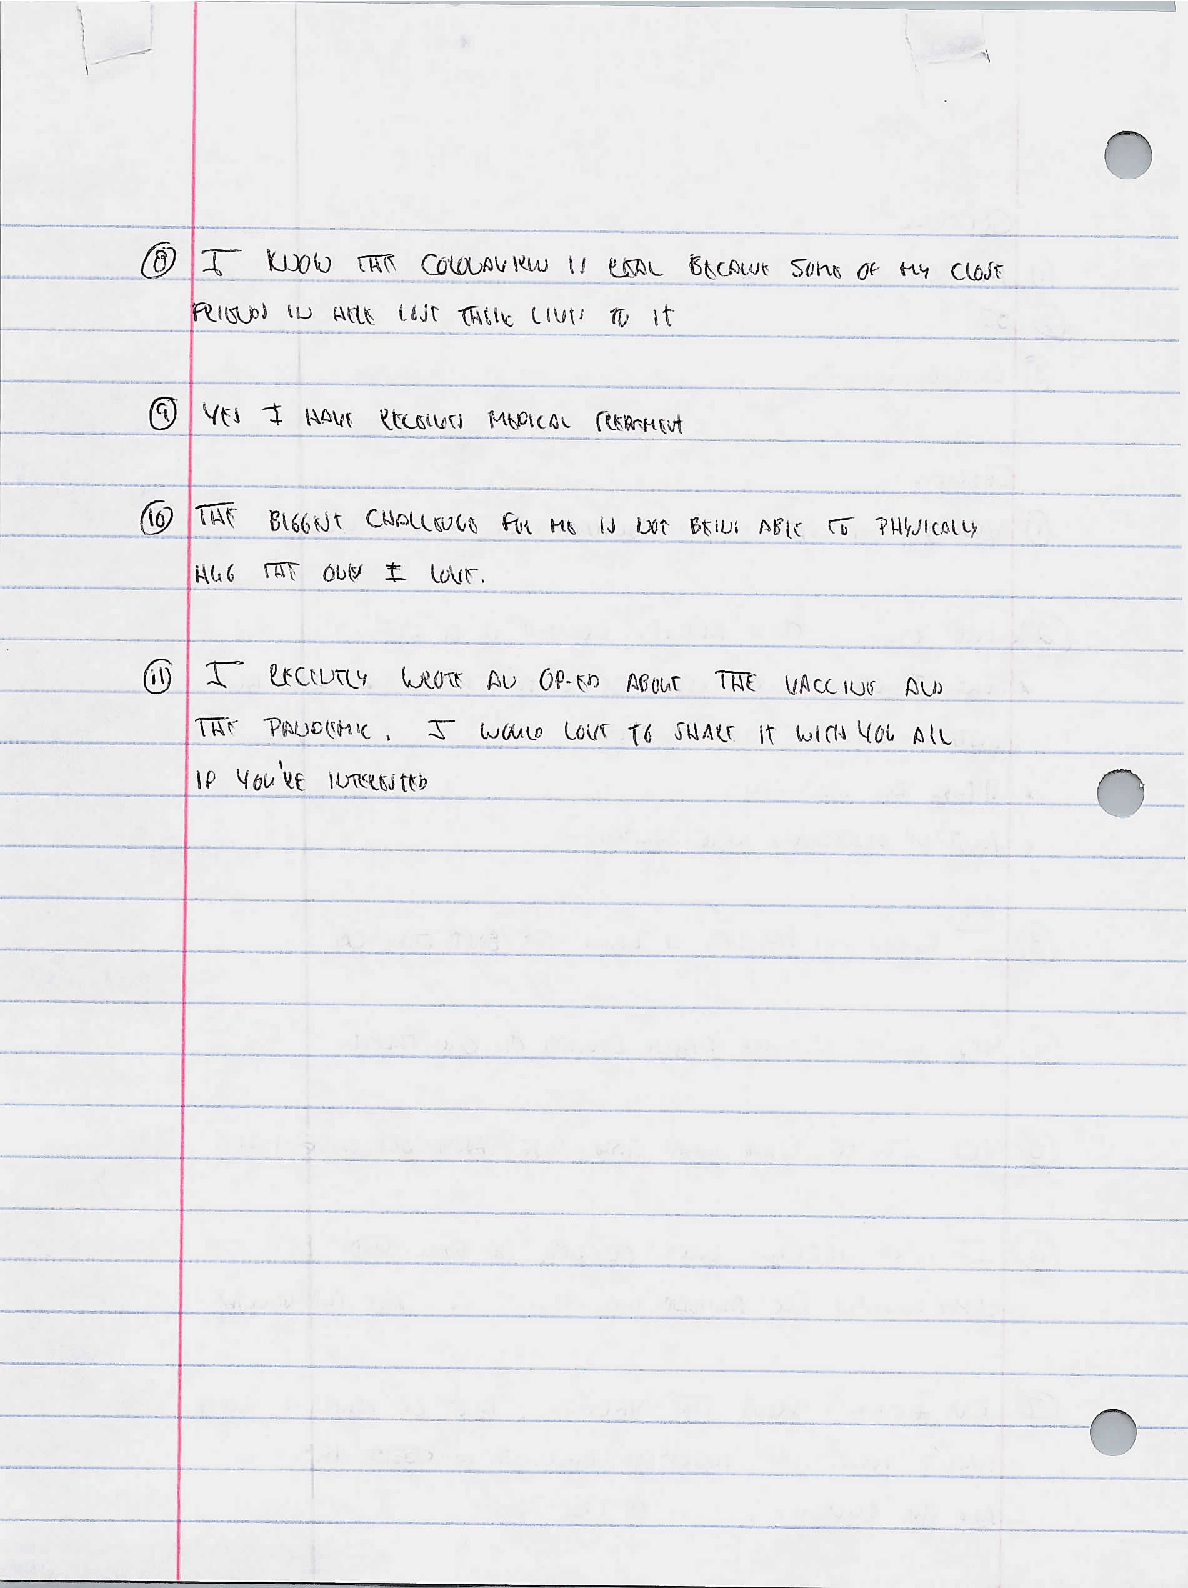 ⑧ I KNOW THE CORONAVIRUS IS REAL BECAUSE SOME OF MY CLOSE
FRIENDS IN HERE LOST THEIR LIVES TO IT
⑨ YES I HAVE RECEIVED MEDICAL TREATMENT
⑩ THE BIGGEST CHALLENGE FOR ME IS NOT BEING ABLE TO PHYSICALLY
HUG THE ONES I LOVE.
⑪ I RECENTLY WROTE AN OP-ED ABOUT THE VACCINE AND
THE PANDEMIC. I WOULD LOVE TO SHARE IT WITH YOU ALL
IF YOU'RE INTERESTED